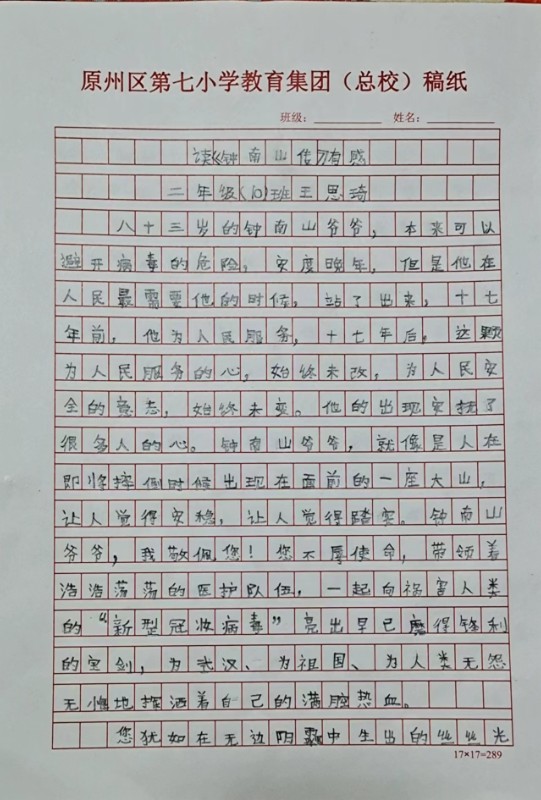 原州区第七小学教育集团（总校）稿纸
班级： 姓名：
读《钟南山传》有感
二年级(10)班王思琦
八十三岁的钟南山爷爷，本来可以
避开病毒的危险，安度晚年，但是他在
人民最需要他的时候，站了出来，十七
年前，他为人民服务，十七年后，这颗
为人民服务的心，始终未改，为人民安
全的意志，始终未变。他的出现安抚了
很多人的心。钟南山爷爷，就像是人在
即将摔倒时候出现在面前的一座大山，
让人觉得安稳，让人觉得踏实。钟南山
爷爷，我敬佩您！您不辱使命，带领着
浩浩荡荡的医护队伍，一起向祸害人类
的“新型冠妆病毒”亮出早已磨得锋利
的宝剑，为武汉、为祖国、为人类无怨
无悔地挥洒着自己的满腔热血。
您犹如在无边阴霾中生出的丝丝光
17×17=289